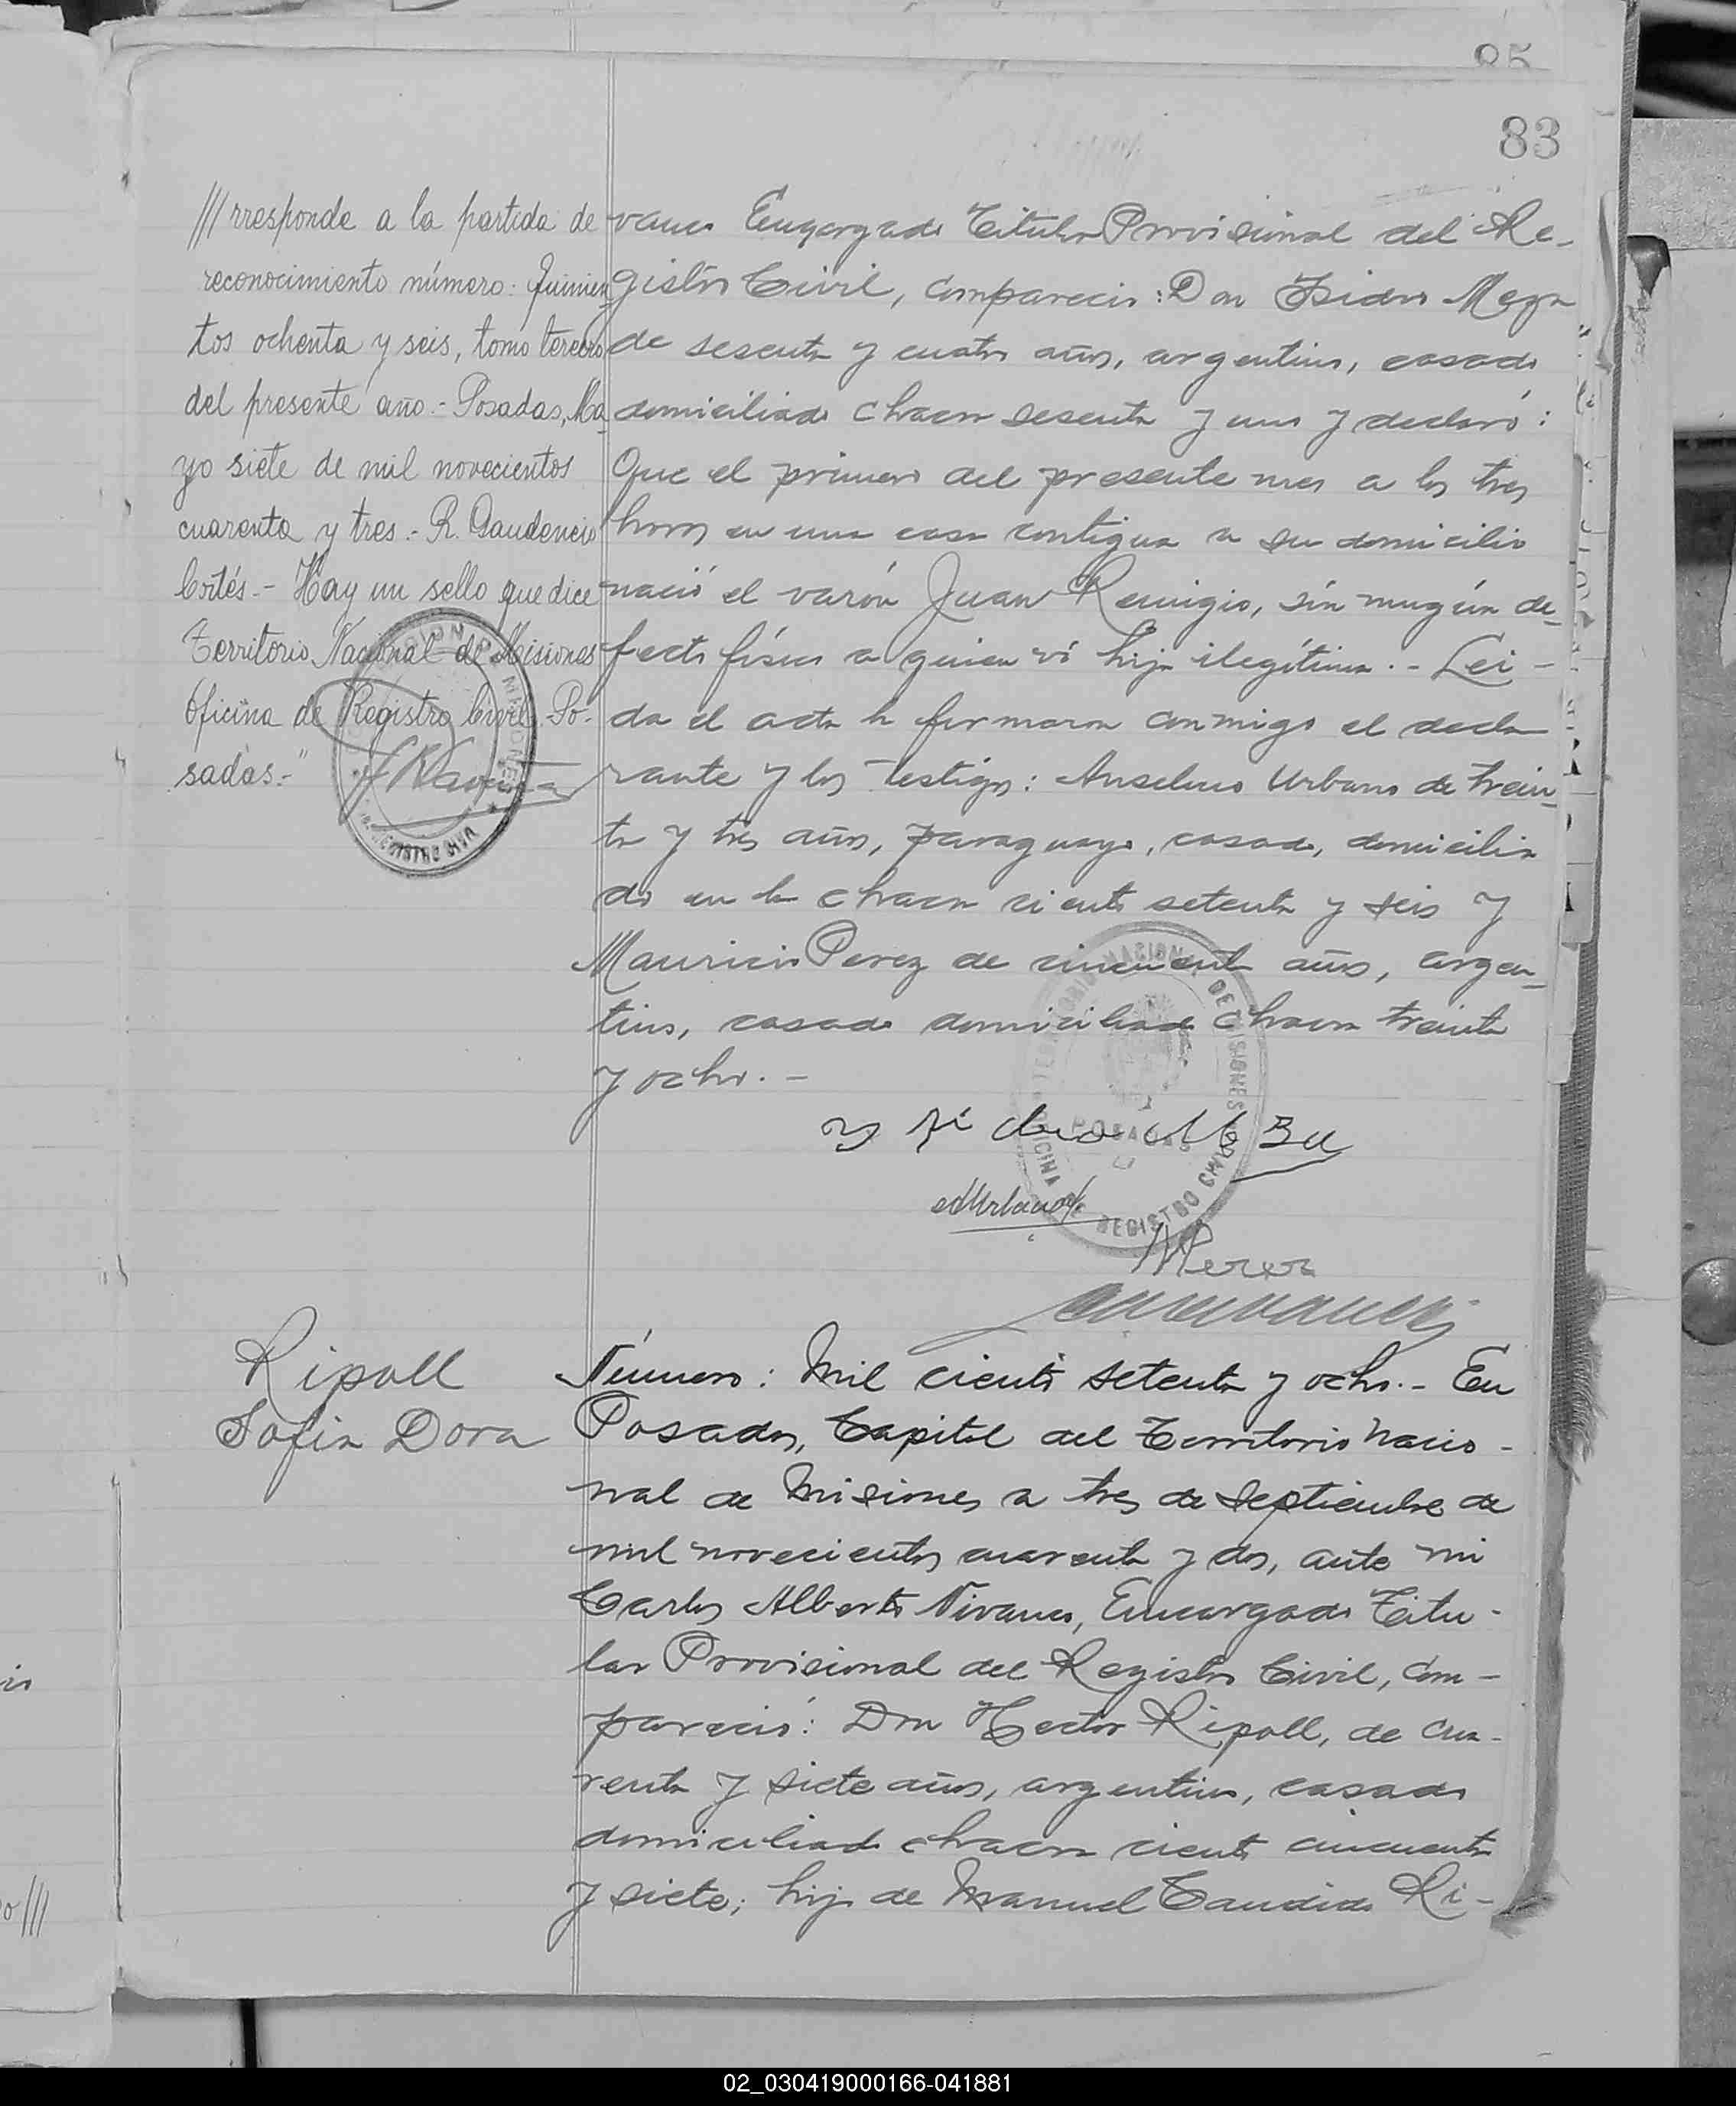 85
83
/// rresponde a la partida de
reconocimiento número: Quinien
tos ochenta y seis, tomo tercero
del presente año.- Posadas, Ma
yo siete de mil novecientos
cuarenta y tres.- R. Gaudencio
Cortés.- Hay un sello que dice
Territorio Nacional de Misiones
Oficina de Registro Civil.- Po-
sadas.-"
REGISTRO CIVIL
vanco Encargado Titular Provisional del Re-
gistro Civil, compareció: Don Isidro Meza
de sesenta y cuatro años, argentino, casado
domiciliado chacra sesenta y uno y declaró:
Que el primero del presente mes a las tres
horas en una casa contigua a su domicilio
nació el varón Juan Remigio, sin ningún de-
fecto físico a quien ví hijo ilegítimo.- Lei-
da el acta la firmaron conmigo el decla
rante y los testigos: Anselmo Urbano de trein-
ta y tres años, paraguayo, casado, domicilia
do en la chacra ciento setenta y seis y
Mauricio Perez de cincuenta años, argen-
tino, casado domiciliado chacra treinta
y ocho.-
TERRITORIO NACIONAL DE MISIONES
POSADAS
OFICINA REGISTRO CIVIL
MPerez
Ripoll
Sofia Dora
Número: Mil ciento setenta y ocho.- En
Posadas, Capital del Territorio Nacio-
nal de Misiones a tres de Septiembre de
mil novecientos cuarenta y dos, ante mi
Carlos Alberto Vivanco, Encargado Titu-
lar Provisional del Registro Civil, com-
pareció: Don Hector Ripoll, de cua-
renta y siete años, argentino, casado
domiciliado chacra ciento cincuenta
y siete; hijo de Manuel Candido Ri-
02_030419000166-041881